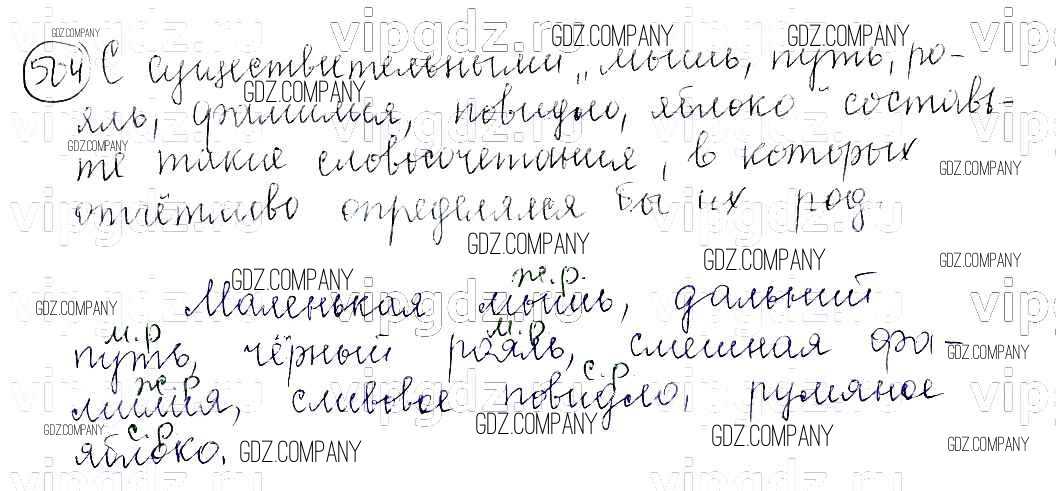 504 С существительными „мышь, путь, ро-
яль, фамилия, повидло, яблоко" составь-
те такие словосочетания, в которых
отчётливо определялся бы их род.
ж.р.
Маленькая мышь, дальний
м.р м.р
путь, чёрный рояль, смешная фа-
ж.р с.р
милия, сливовое повидло, румяное
с.р
яблоко.
vipgdz.ru
GDZ.COMPANY